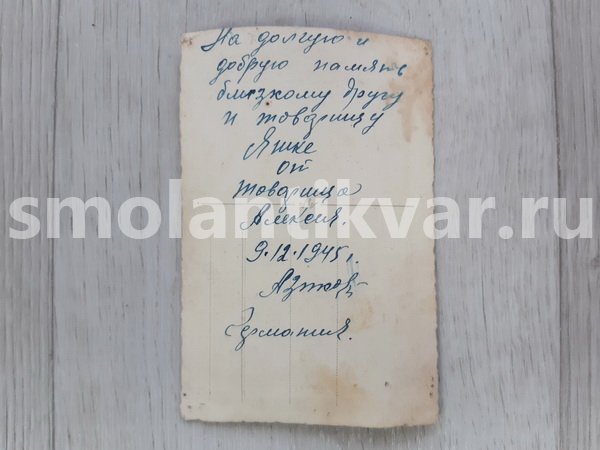 На долгую и
добрую память
близкому другу
и товарищу
Яшке
от
товарища
Алексея.
9.12.1945 г.
Германия.
smolantikvar.ru